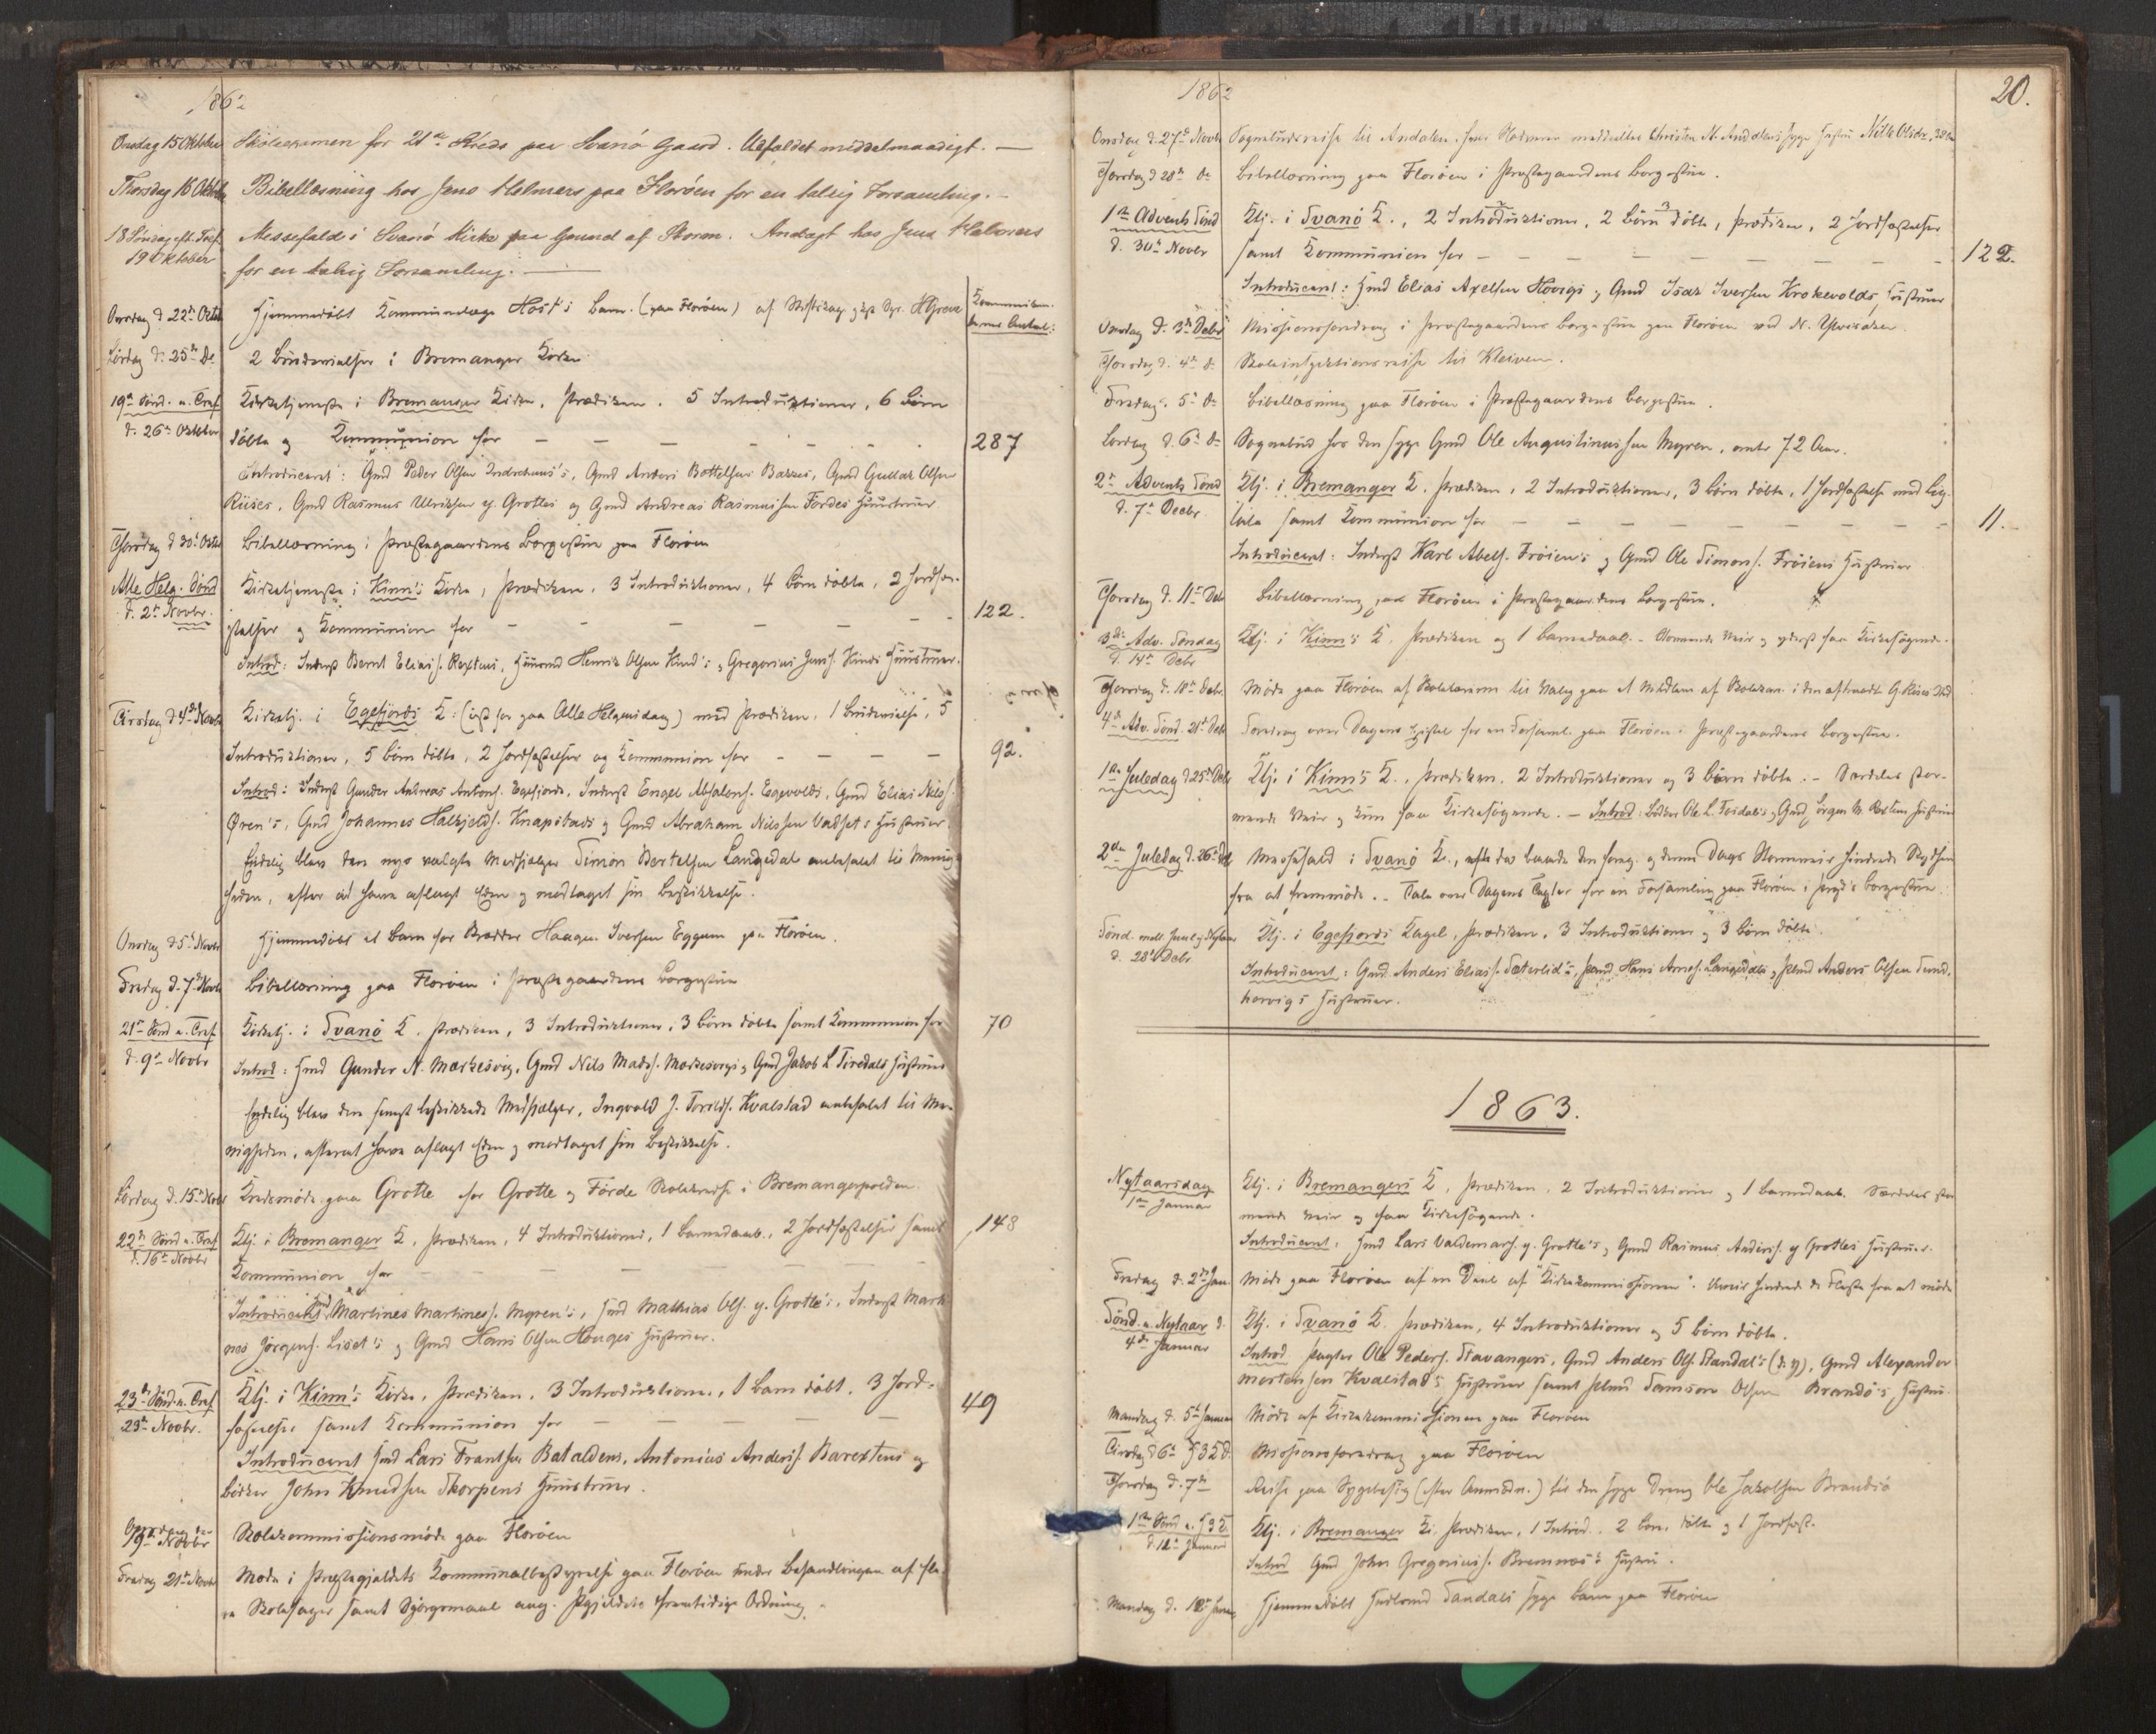 1862
Onsdag 15 Oktober Skoleexamen for 21de Kreds paa Svanö Gaard. Udfaldet middelmaadigt. —
Thorsdag 16 Oktober Bibellæsning hos Jens Holmers paa Florøen for en talrig Forsamling. —
18 Søndag eft. Tref. Messefald i Svanö Kirke paa Grund af Storm. Andagt hos Jens Holmers
19 Oktober for en talrig Forsamling. —
Onsdag d 22de Hjemmedöbt Kommunelæge Host's Barn. (paa Florøen) af
Lördag d. 25de Do 2 Brudevielser i Bremanger Kirke
19de Sönd. e. Tref. Kirketjeneste i Bremanger Kirke, Prædiken, 5 Introduktioner, 6 Börn
d. 26de Oktober döbte og Kommunion for — — — 287
Introduceret: Gmd Peder Olsen Indrehuus's, Gmd Anders Bottolfsens, Gmd Gullak Olsen
Riises, Gmd Rasmus Ulriksen y. Grotles og Gmd Andreas Rasmussen Fördes Huustruer
Thorsdag d 30te Oktbr Bibellæsning i Præstegaardens Borgestue paa Florøen
Alle Helg. Sönd Kirketjeneste i Kinn's Kirke, Prædiken, 3 Introduktioner, 4 Börn döbte, 2 Jordfæ-
d. 2de Novbr. stelser og Kommunion for — — — 122.
Introd: Inderst Bernt Eliass. Rextens, Huusmd Henrik Olsen Kinn's, Gregorius Jenss. Kinns Huustruer.
Tirsdag d 4de Novbr Kirketj. i Egefjords K: (istf. for paa Alle Helgensdag) med Prædiken, 1 Brudevielse, 5
Introduktioner, 5 Börn döbte, 2 Jordfæstelser og Kommunion for — — — 92.
Introd: Inderst Gunder Andreas Antons. Egefjords, Inderst Engel Absalons. Egevolds, Gmd Elias Nilss.
Øren's, Gmd Johannes Halkjelds. Knapstads og Gmd Abraham Nilssen Vadset's Hustruer.
Endelig blev den nye valgte Medhjælper Simon Bertelsen Langedal anbefalet til Menig-
heden, efter at have aflagt Eden og modtaget sin Beskikkelse.
Onsdag d 5te Novbr Hjemmedöbt et Barn for Haagen Iversen Eggum paa Florøen.
Fredag d. 7de Novbr Bibellæsning paa Florøen i Præstegaardens Borgestue
21de Sönd e. Tref. Kirketj. i Svanö K. Prædiken, 3 Introduktioner, 3 Börn döbte samt Kommunion for 70
d. 9de Novbr Introd: Hmd Gunder N. Markesvig, Gmd Nils Madss. Markesvigs, Gmd Jakob L Tiredals Hustruer
Endelig blev den senest beskikkede Medhjælper, Ingvald J. Torilds. Kvalstad anbefalet til Me-
nigheden, efterat have aflagt Eden og modtaget sin Beskikkelse.
Lördag d. 15de Novbr Kredsmöde paa Grotle for Grotle og Förde Skolekredse i Bremangerpolden
22de Sönd e. Tref. Ktj. i Bremanger K, Prædiken, 4 Introduktioner, 1 Barnedaab, 2 Jordfæstelser samt 148
d. 16de Novbr Kommunion for — — —
Introduceret: Gmd Martines Martiness. Myren's, Hmd Mathias Ols. y. Grotle's, Inderst Marti-
nes Jörgens. Liset's og Gmd Hans Olsen Hauges Hustruer.
23de Sönd e. Tref. Ktj. i Kinn's Kirke, Prædiken, 3 Introduktioner, 1 Barn döbt, 3 Jord-
23de Novbr. fæstelser samt Kommunion for — — — 49
Introduceret Hmd Lars Frantsen Bataldens, Antonius Anders. Barextens og
Bödker John Knudsen Thorpens Huustruer.
19de Novbr Skolekommissionsmöde paa Florøen
Fredag 21de Novbr Möde i Præstegjældets Kommunalbestyrelse paa Florøen under Behandlingen af fle-
re Skolesager samt Spörgsmaal ang. Pgjeldets fremtidige Ordning.
1862 20.
Onsdag d. 27de Novbr Sognebudsreise til Andalen. Nille Olsdr, 38 Aar
Thorsdag d 28de Do Bibellæsning paa Florøen i Præstegaardens Borgestue.
1ste Advents Sönd Ktj. i Svanö K., 2 Introduktioner, 2 Börn döbte, Prædiken, 2 Jordfæstelser
d. 30te Novbr samt Kommunion for — — — 122.
Introduceret: Hmd Elias Axelsen Hovigs, Gmd Isak Iversen Krokevolds Hustruer
Onsdag d. 3de Decbr Missionsforedrag i Præstegaardens Borgestue paa Florøen ved N.
Thorsdag d. 4de do Skoleinspektionsreise til Kleiven.
Fredag d. 5te do Bibellæsning paa Florøen i Præstegaardens Borgestue.
Lördag d. 6te do Sognebud hos den syge Gmd Ole Augustinussen Myren, omtr 72 Aar.
2den Advents Sönd Ktj. i Bremanger K. Prædiken, 2 Introduktioner, 3 Börn döbte, 1 Jordfæstelse med Lig-
d. 7de Decbr. tale samt Kommunion for — — — 11.
Introduceret: Inderst Karl Abels. Fröien's og Gmd Ole Simons. Fröiens Hustruer
Thorsdag d. 11te Dcbr Bibellæsning paa Florøen i Præstegaardens Borgestue.
3die Adv. Söndag Ktj. i Kinn's K. Prædiken og 1 Barnedaab. – Stormende Veir og yderst faa Kirkesögende.
d. 14de Dcbr
Thorsdag d. 18de Dcbr. Möde paa Florøen af Skolelærerne til Valg paa et Medlem af Skolekom. i den aftraadte G. Riises Sted
4de Adv. Sönd. 21de Dcbr Foredrag over Dagens Epistel for en Forsaml. paa Florøen i Præstegaardens Borgestue.
1ste Juledag d 25de Dcbr Ktj. i Kinn's K., Prædiken, 2 Introduktioner og 3 Börn döbte. – Særdeles stor-
mende Veir og kun faa Kirkesögende. – Introd: Bödker Ole L. Tvidals og Gmd Rextens Hustruer
2den Juledag d. 26de Messefald i Svanö K., efterdi baade den foreg. og denne Dags Stormveir hindrede Skydsen
fra at fremmöde. – Tale over Dagens Text for en Forsamling paa Florøen i Præst's Borgestue.
Sönd. mell. Juul og Nytaar Ktj. i Egefjords Kapel, Prædiken, 3 Introduktioner og 3 Börn döbte.
d. 28de Dcbr Introduceret: Gmd. Anders Elias. Sæterlid's, Hans Arnes. Langedals og Anders Olsen Sund-
horvigs Hustruer.
1863.
Nytaarsdag Ktj. i Bremangers K, Prædiken, 2 Introduktioner og 1 Barnedaab. Særdeles stor-
1ste Januar mende Veir og faa Kirkesögende.
Introduceret: Hmd Lars Valdemars. y. Grotle's, Gmd Rasmus Anderss. y Grotles Hustruer.
Fredag d. 2den Jan. Möde paa Florøen af en Deel af "Kirkekommissionen". Uveir hindrede de Fleste fra at möde
Sönd. e. Nytaar d. Ktj. i Svanö K. Prædiken, 4 Introduktioner og 5 Börn döbte.
4de Januar Introd Pagter Ole Peders. Stavangers, Gmd Anders Ols. Standal's (d. y), Gmd Alexander
Mortensen Kvalstad's Hustruer samt Samson Olsen Brandö's Hustru
Mandag d. 5te Januar Möde af Kirkekommissionen paa Florøen
Tirsdag d 6te H3KD. Missionsforedrag paa Florøen
Thorsdag d. 7de Reise paa Sygebesög (efter Anmodn.) til den syge Dreng Ole Jakobsen Brandsö
1ste Sönd e. H3K. Ktj. i Bremanger K. Prædiken, 1 Introd., 2 Börn döbte og 1 Jordfæst.
Januar Introd Gmd John Gregorius. Bremnes's Hustru.
Mandag d. 12te Januar Hjemmedöbt Sandals syge Barn paa Florøen